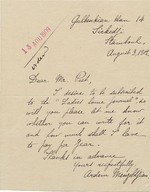 Gulbenkian Han. 14
Sirkedji
Stamboul,
August 9,
Dear Mr.
I desire to be subscribed
to the "Ladies home journal", so
will you please, let me know
whether you can write for it
and how much shall I have
to pay for year.
Thanks in advance
Yours respectfully.